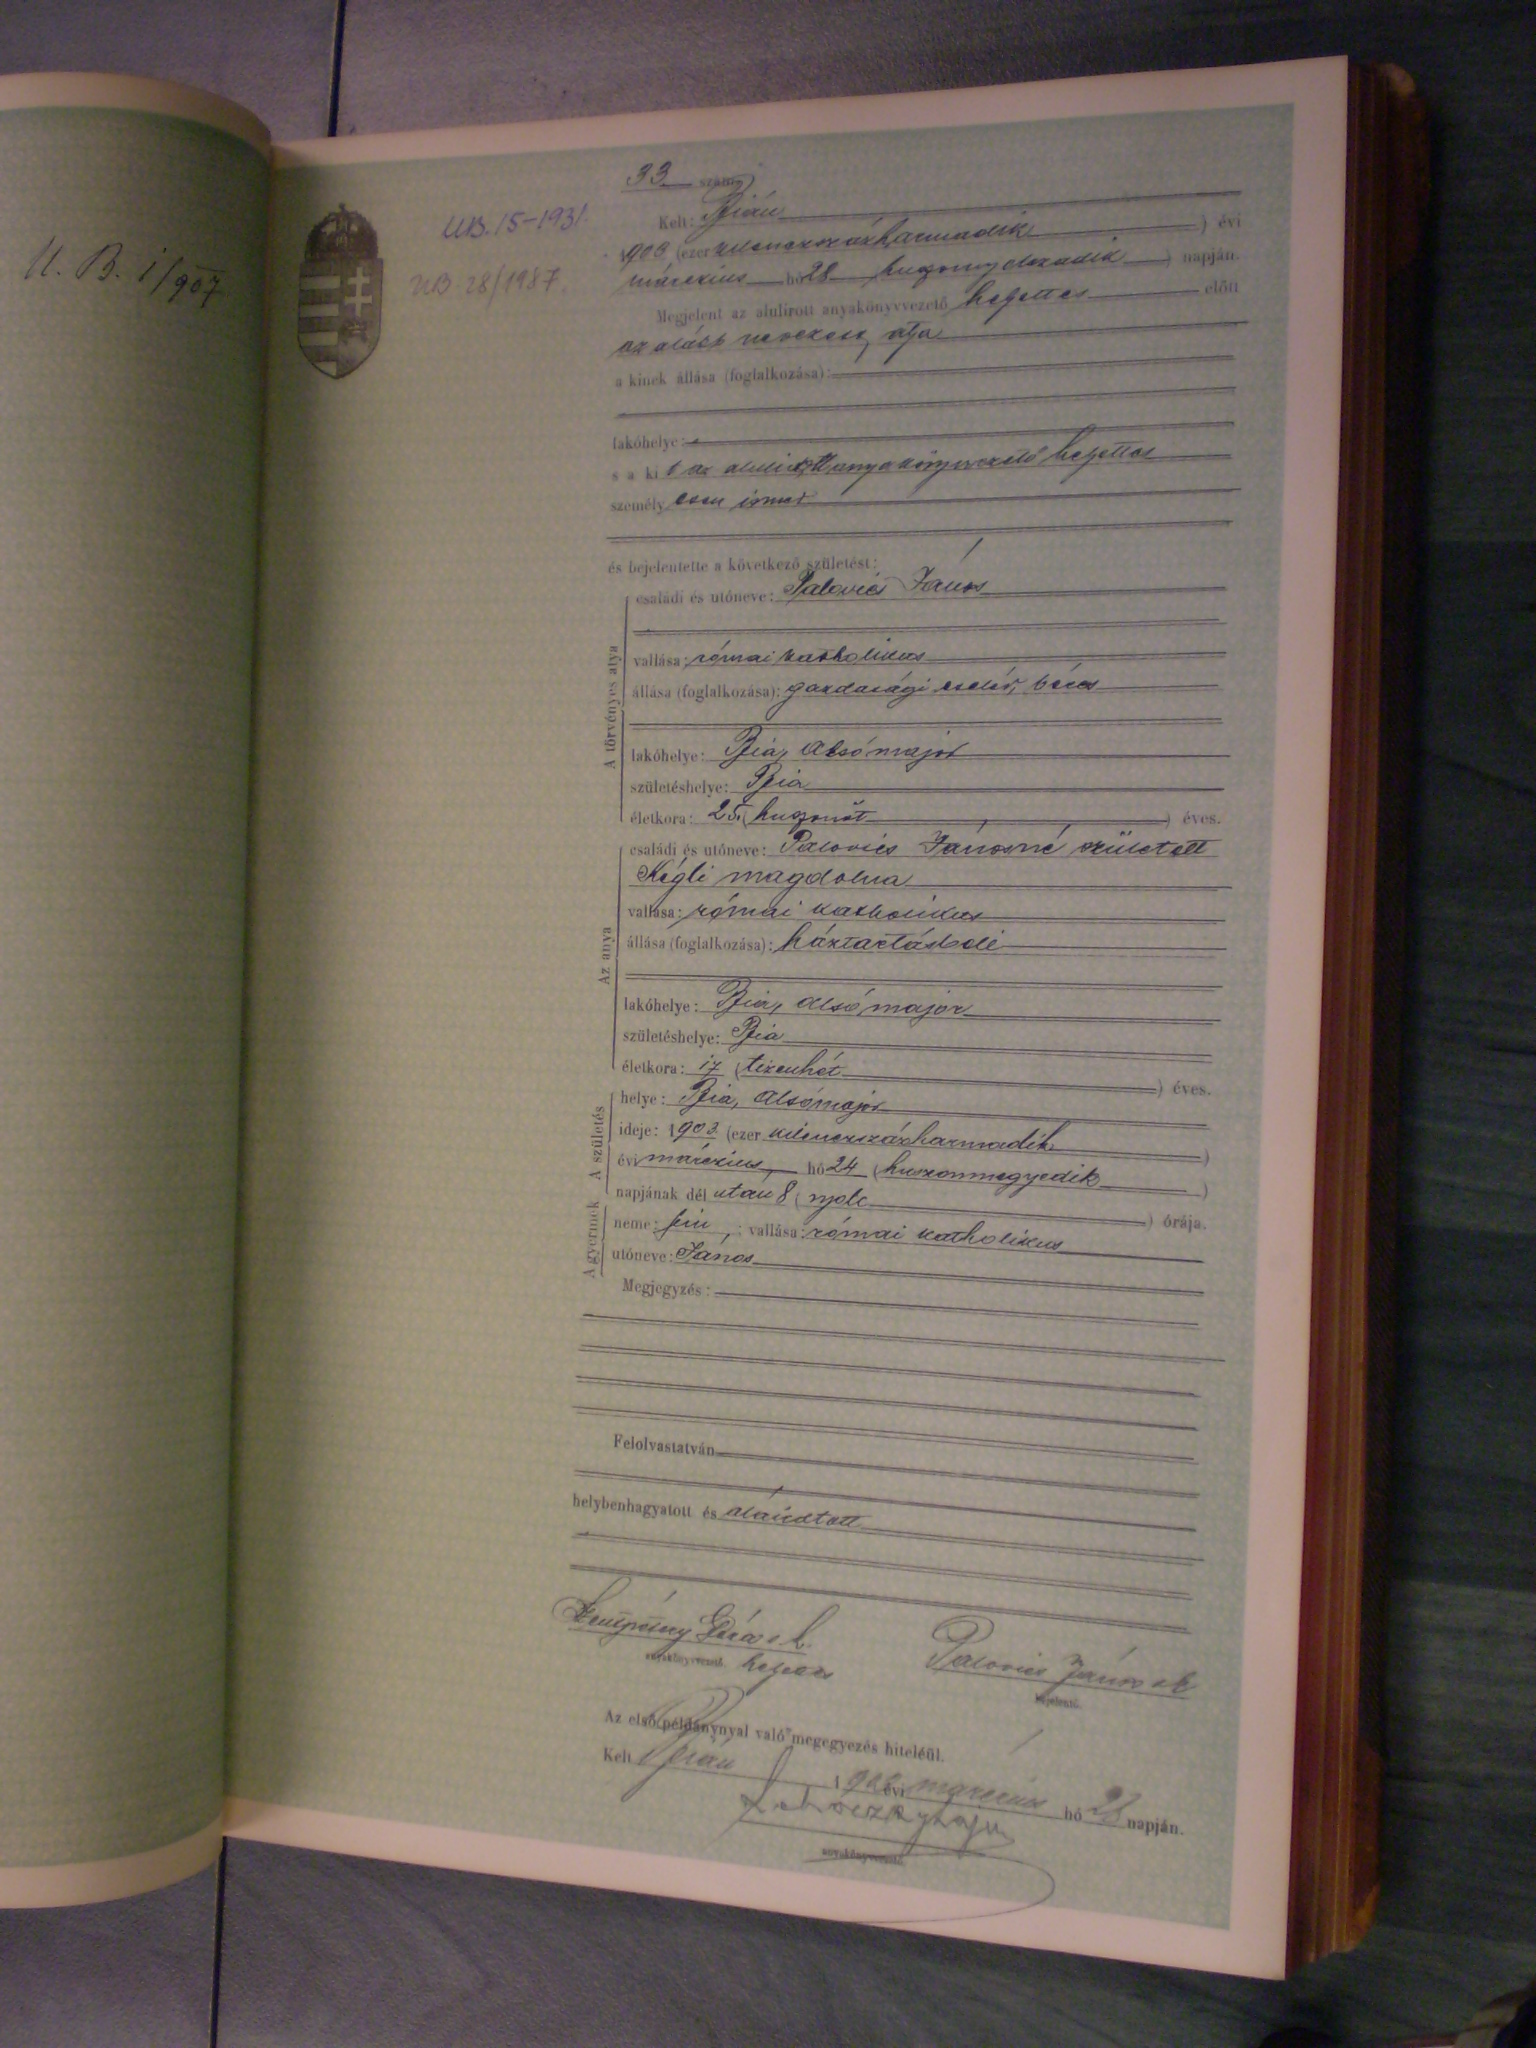 U. B. 1/907
UB. 15-1931.
UB 28/1987.
33 szám
Kelt: Bián
1903 (ezer kilencszázharmadik ) évi
márczius hó 28 huszonnyolczadik ) napján.
Megjelent az alulírott anyakönyvvezető helyettes előtt
az alább nevezett atya
a kinek állása (foglalkozása):
lakóhelye:
s a ki t az alulirott anyakönyvvezető helyettes
személyesen ismer
és bejelentette a következő születést:
A törvényes atya
családi és utóneve: Palovics János
vallása: római katholikus
állása (foglalkozása): gazdasági cseléd, béres
lakóhelye: Bia, Alsómajor
születéshelye: Bia
életkora: 25. ( huszonöt ) éves.
Az anya
családi és utóneve: Palovics Jánosné született
Kégli Magdolna
vallása: római katholikus
állása (foglalkozása): háztartásbeli
lakóhelye: Bia, Alsómajor
születéshelye: Bia
életkora: 17 ( tizenhét ) éves.
A születés
helye: Bia, Alsómajor
ideje: 1903 (ezer kilenczszázharmadik )
évi márczius hó 24 ( huszonnegyedik )
napjának dél után 8 ( nyolc ) órája.
A gyermek
neme: fiu , vallása: római katholikus
utóneve: János
Megjegyzés:
Felolvastatván
helybenhagyatott és aláiratott
Géza s. k.
anyakönyvvezető. helyettes
Palovics János s k
bejelentő.
Az első példánynyal való megegyezés hiteléül.
Kelt Bián 1903 évi márczius hó 28 napján.
Lajos
anyakönyvvezető